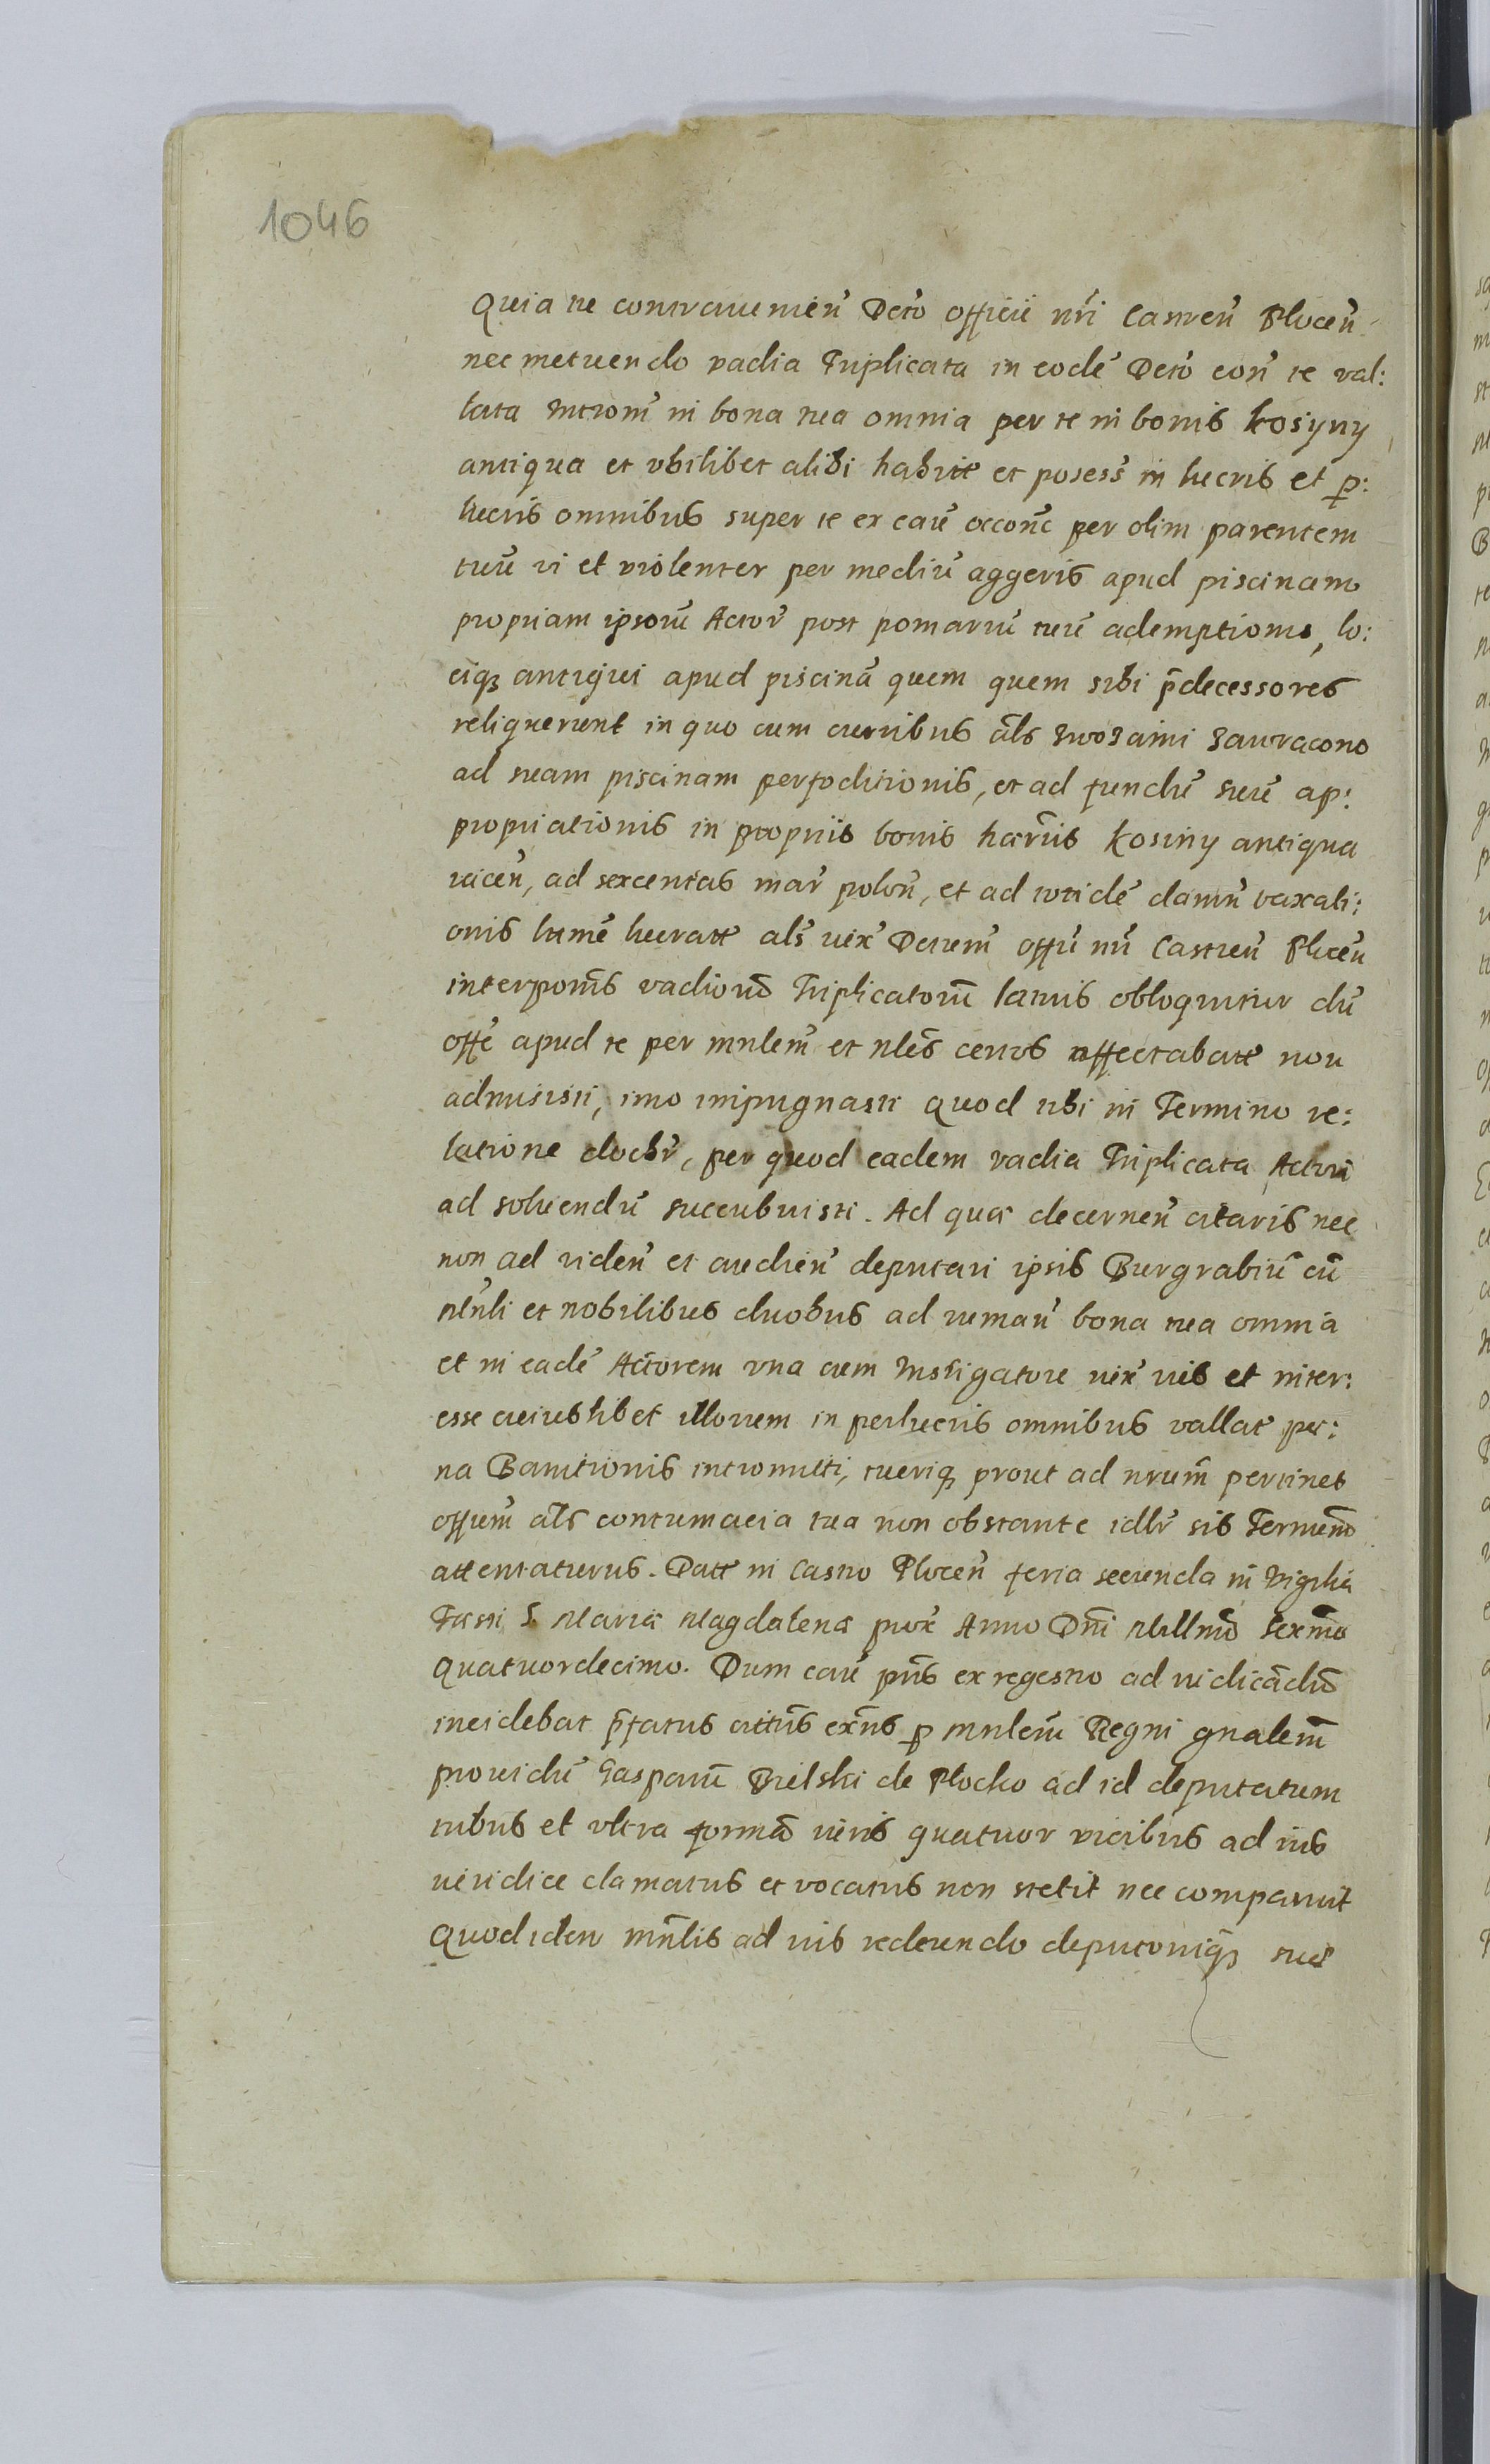 1046
Quia tu contravenien̄ Decrō officii nr̄i Castren̄ Plocen̄
nec metuendo vadia Triplicata in eodē Decrō con̄ te val:
lata Introm̄ in bona tua omnia per te in bonis Kosyny
antiqua et vbilibet alibi habite et posess̄ in lucris et ꝑ:
lucris omnibus super te ex cau᷑ occonē per olim parentem
tuū vi et violenter per mediū aggeris apud piscinam
propriam ipsorū Actor᷑ post pomariū tuū ademptionis, lo:
ciqꝫ antiqui apud piscinā quem quem sibi p̄decessores
reliquerunt in quo cum curribus al̄s zwozami zawracono
ad tuam piscinam perfoditionis, et ad fundū tuū ap:
propriationis in propriis bonis hær̄iis Kosiny antiqua
iacen̄, ad sexcentas mar᷑ polon̄, et ad totidē damn̄ taxati:
onis summē lucratæ al̄s iux᷑ Decrem̄ offii nr̄i Castren̄ Plocen̄
interpōnis vadiorū Triplicatorū latius obloquitur dū
offē apud te per mnlem̄ et nlēs certos affectabatr non
admisisti, imo impugnasti quod tibi in Termino re:
latione docebr̄, per quod eadem vadia Triplicata Actori
ad soluendū succubuisti. Ad quæ decernen̄ citaris nec
non ad viden̄ et audien̄ deputari ipsis Burgrabiū cū
mn̄li et nobilibus duobus ad ruman̄ bona tua omnia
et in eadē Actorem vna cum Instigatore iux᷑ ius et inter:
esse cuiuslibet illorum in perlucris omnibus vallatæ pæ:
na Banitionis intromitti, tueriqꝫ prout ad nrum̄ pertinet
offium̄ al̄s contumacia tua non obstante idlr̄ sis Terminū
attentaturus. Datt in Castro Plocen̄ feria secunda in vigilia
Festi S Mariæ Magdalenæ prox᷑ Anno Dn̄i Millmō Sexmo
Quatuordecimo. Dum cau᷑ pn̄s ex regestro ad iudicādū
incidebat p̄fatus citt̄us exn̄s ꝑ mnlem̄ Regni gnalem̄
prouidū Gasparū Bielski de Plocko ad id deputatum
tribus et vltra formā iuris quatuor vicibus ad ius
iuridice clamatus et vocatus non stetit nec comparuit
Quod idem mn̄lis ad ius redeundo deputoniqꝫ suæ